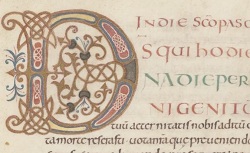 IN DIE SCO PASC
DS QUI HODIE
NA DIE PER
NIGENITU
tuum aeternitatis nobis aditu
ta morte reserasti uota nra que preueniendo